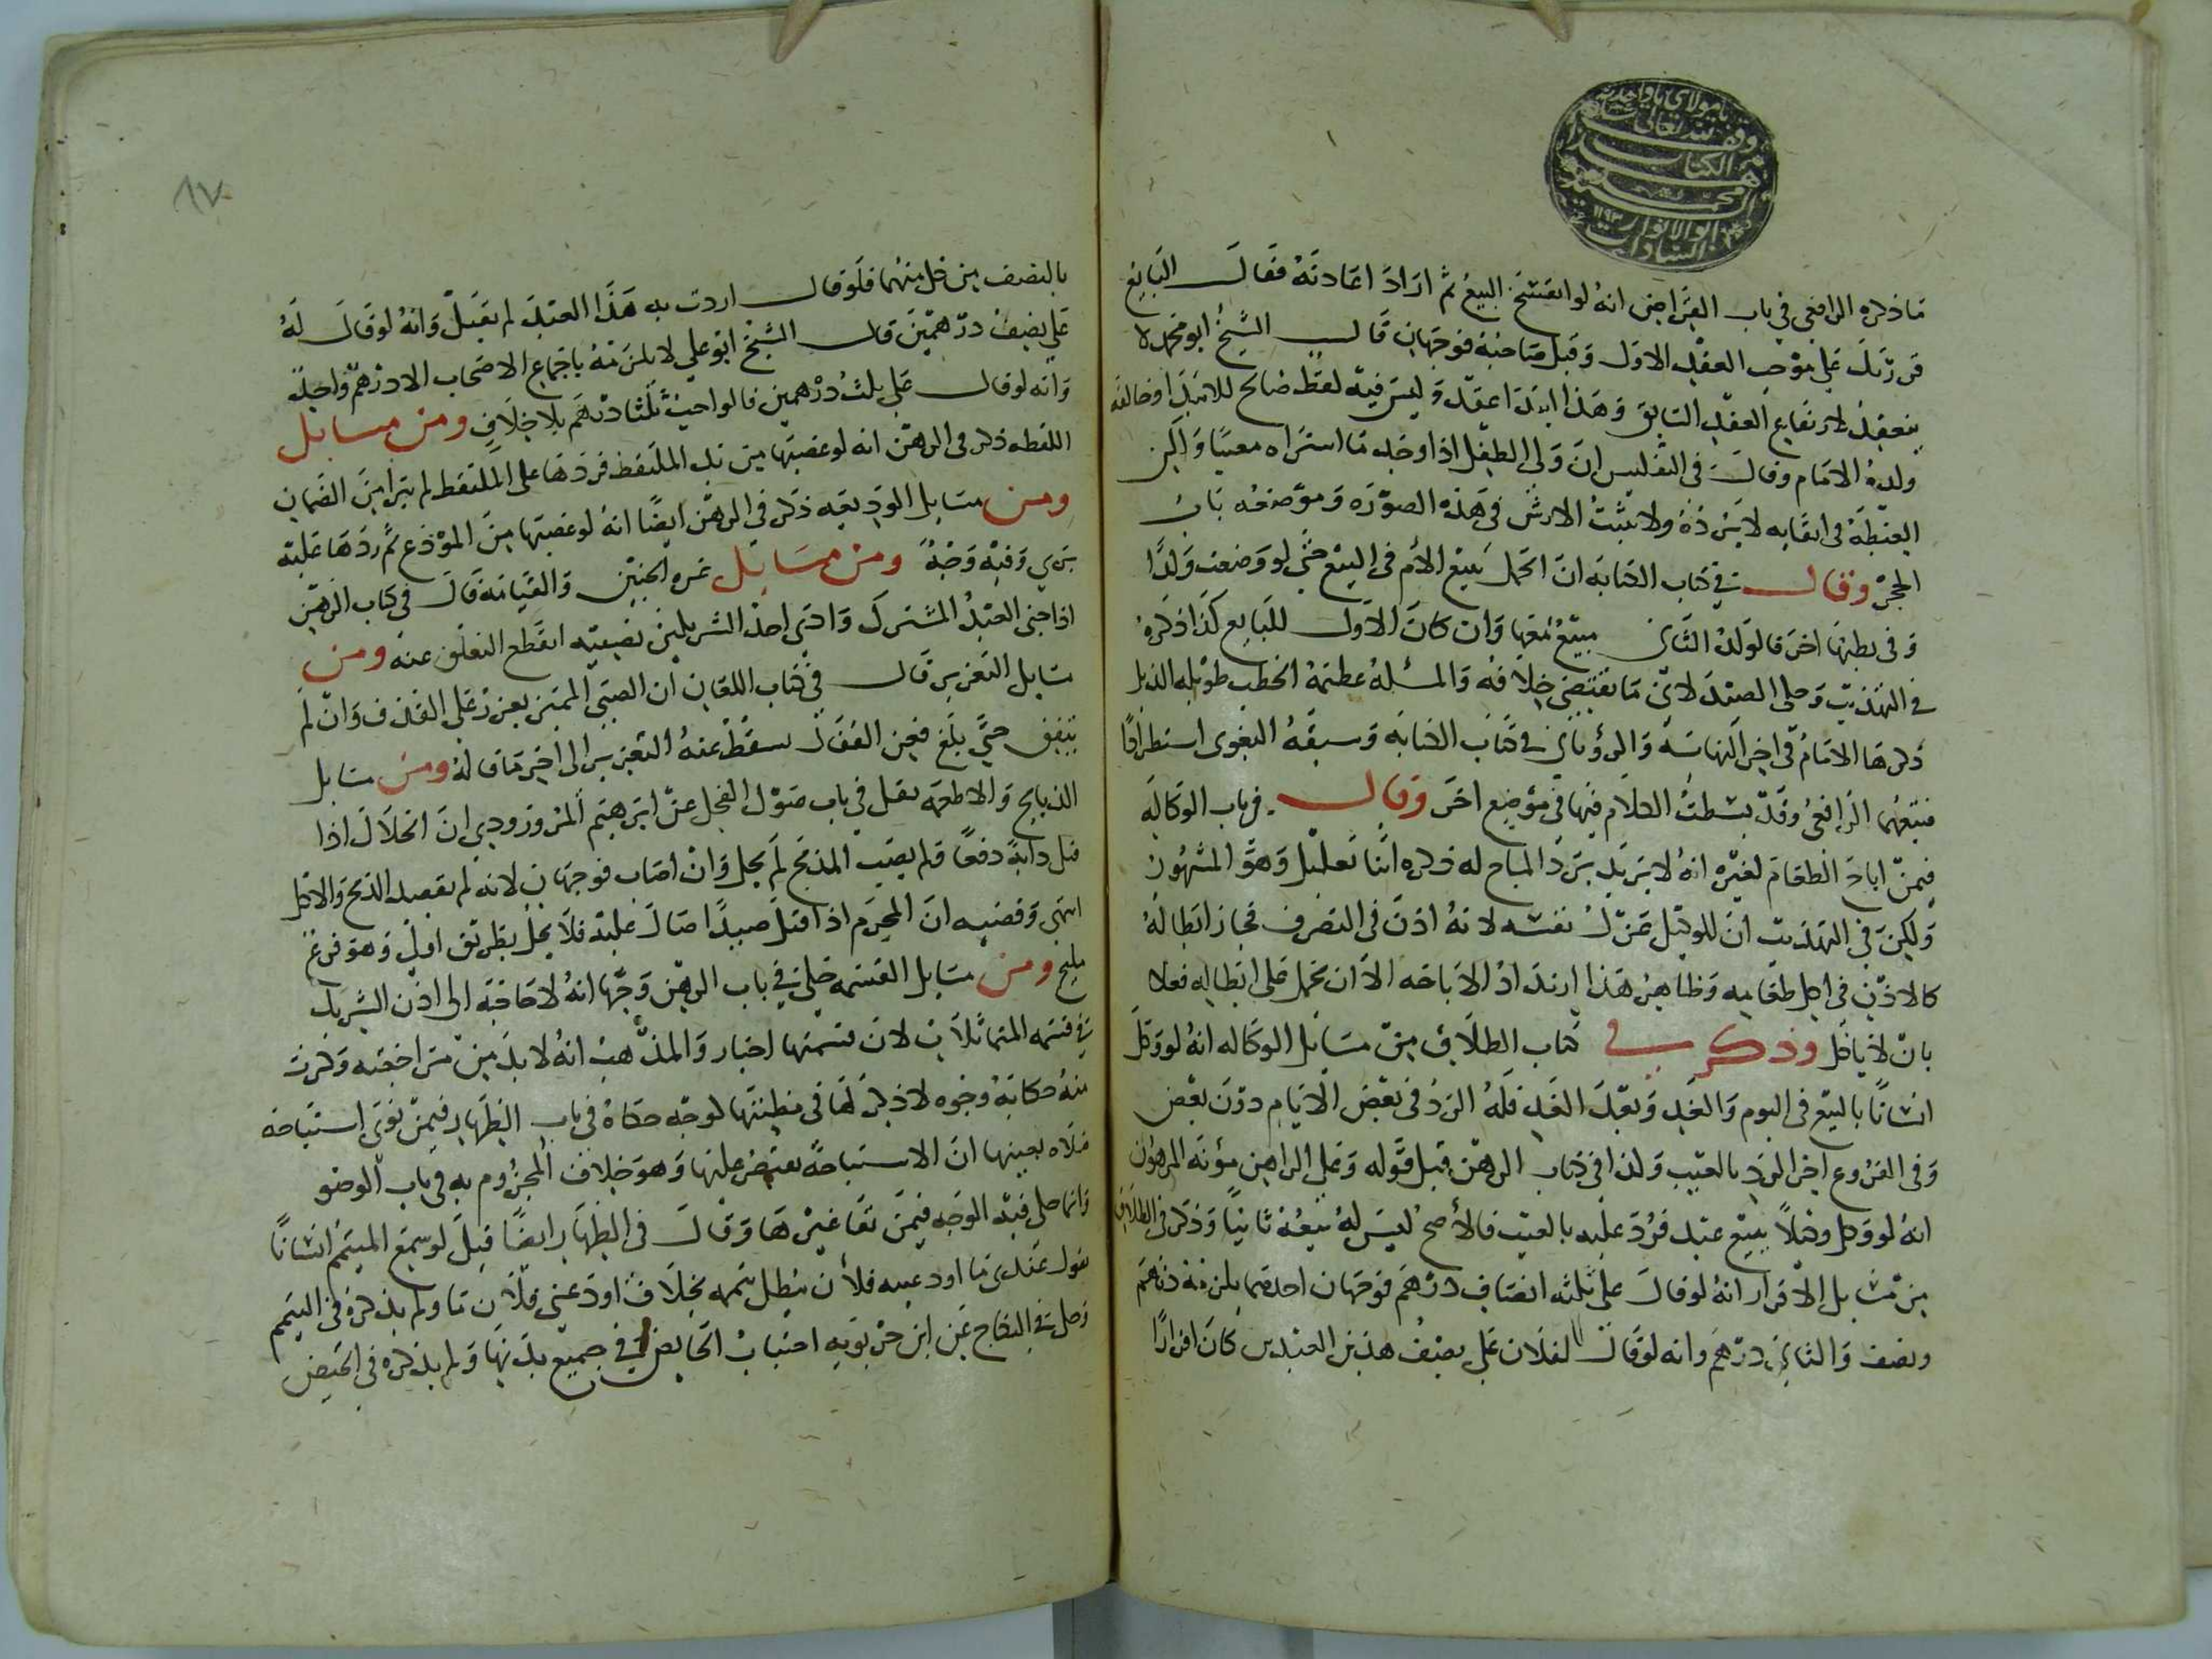 يا مولاي يا واحد
وقف لله تعالى
هذا الكتاب
محمد
ابو الانوار ١١٩٣
السادات
ما ذكره الرافعي في باب القراض انه لو انفسخ البيع ثم اراد اعادته فقال البايع
قررتك على موجب العقد الاول وقبل صاحبه فوجهان قال الشيخ ابو محمد لا
ينعقد لارتفاع العقد السابق وهذا ابتدا عقد وليس فيه لفظ صالح للابتدا وخالفه
ولده الامام وقال في التفليس ان ولي الطفل اذا وجد ما اشتراه معيبا ولكن
الغبطة في ابقايه لا يرده ولا يثبت الارش في هذه الصورة وموضعه باب
الحجر وقال في كتاب الكتابة ان الحمل يتبع الام في البيع حتى لو وضعت ولدا
وفي بطنها اخر فالولد الثاني مبيع معها وان كان الاول للبايع كذا ذكره
في التهذيب وحكى الصيدلاني ما يقتضي خلافه والمسئلة عظيمة الخطب طويلة الذيل
ذكرها الامام في اخر النهاية والروياني في كتاب الكتابة وسبقه البغوي استطرادا
فتبعهما الرافعي وقد بسطت الكلام فيها في موضع اخر وقال في باب الوكالة
فيمن اباح الطعام لغيره انه لا يرتد برد المباح له ذكره اثنا تعليل وهو المشهور
ولكن في التهذيب ان للوكيل عزل نفسه لانه اذن في التصرف فجاز ابطاله
كالاذن في اكل طعامه وظاهر هذا ارتداد الاباحة الا ان يحمل على ابطاله فعلا
بان لا ياكل وذكر في كتاب الطلاق من مسايل الوكاله انه لو وكل
انسانا بالبيع في اليوم والغد وبعد الغد فله الرد في بعض الايام دون بعض
وفي الفروع اخر الرد بالعيب وكذا في كتاب الرهن قبل قوله وعلى الراهن مؤنة المرهون
انه لو وكل وكيلا ببيع عبد فرد عليه بالعيب فالاصح ليس له بيعه ثانيا وذكر في الطلاق
من مسايل الاقرار انه لو قال علي ثلثه انصاف درهم فوجهان احدهما يلزمه درهم
ونصف والثاني درهم وانه لو قال لفلان علي نصف هذين العبدين كان اقرارا
١٧
بالنصف من كل منهما فلو قال اردت به هذا العبد لم يقبل وانه لو قال له
علي نصف درهمين قال الشيخ ابو علي لا يلزمه باجماع الاصحاب الا درهم واحد
وانه لو قال علي ثلث درهمين قالوا حيث ثلثا درهم بلا خلاف ومن مسايل
اللقطه ذكر في الرهن انه لو غصبها من يد الملتقط فردها على الملتقط لم يبرا من الضمان
ومن مسايل الوديعه ذكر في الرهن ايضا انه لو غصبها من المودع ثم ردها عليه
بري وفيه وجه ومن مسايل غره الجنين والقيامه قال في كتاب الرهن
اذا جنى العبد المشترك وادى احد الشريكين نصيبه انقطع التعلق عنه ومن
مسايل التعزير قال في كتاب اللعان ان الصبي المميز يعزر على القذف وان لم
يتفق حتى بلغ فعن القفال سقط عنه التعزير الى اخر ما قاله ومن مسايل
الذبايح والاطعمه نقل في باب صول الفحل عن ابرهيم المروزودي ان الحلال اذا
قتل دابة دفعا ولم يصب المذبح لم يحل وان اصاب فوجهان لانه لم يقصد الذبح والاكل
انتهى وقضيه ان المحرم اذا قتل صيدا صال عليه فلا يحل بطريق اولى وهو فرع
مليح ومن مسايل القسمه حكى في باب الرهن وجها انه لا حاجة الى اذن الشريك
في قسمه المتماثلات لان قسمتها اجبار والمذهب انه لا بد من مراجعته وذكرت
منه حكاية وجوه لا ذكر لها في مظنتها لوجه حكاه في باب الظهار فيمن نوى استباحه
صلاه بعينها ان الاستباحة يقتصر عليها وهو خلاف المجزوم به في باب الوضو
وانما حكى فيه الوجه فيمن نفا غيرها وقال في الظهار ايضا قيل لو سمع المتيمم انسانا
يقول عندي ما اودعنيه فلان بطل تيممه بخلاف اودعني فلان ما ولم يذكره في التيمم
وحكى في النكاح عن ابن حربويه اجتناب الحايض في جميع بدنها ولم يذكره في الحيض